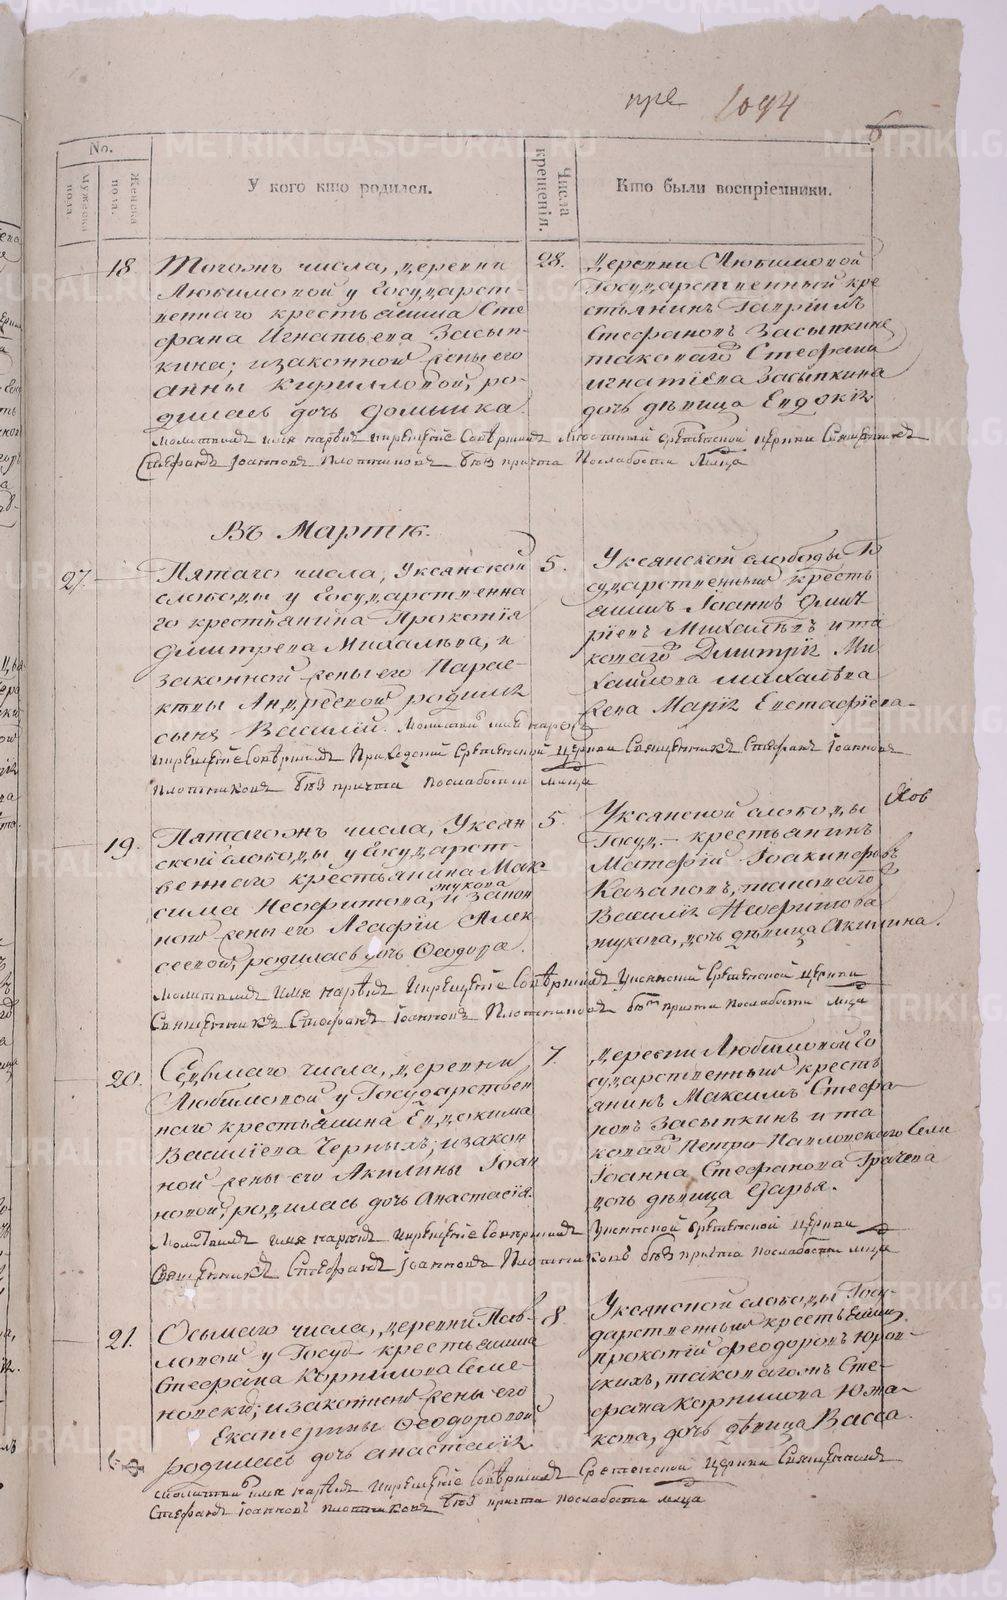 пре 1094
6
No.
Мужеска пола
Женска пола.
У кого кто родился.
Числа крещенія.
Кто были воспріемники.
18. Тогожъ числа, деревни
Любимовой у Государст-
веннаго крестьянина Сте
фана Игнатьева Засып-
кина; и законной жены его
Анны Кирилловой, ро-
дилась дочь Домника.
28. Деревни Любимовой
Государственный кре
стьянинъ Гавріилъ
Стефановъ Засыпкинъ
таковаго Стефана
Игнатіева Засыпкина
дочь дѣвица Евдокія
Молитвилъ имя нарѣкъ и крещеніе совѣршилъ мѣстный Срѣтѣнской цѣркви Священникъ
Стефанъ Іоанновъ Плотниковъ бѣз причта
Въ Мартѣ.
27. Пятаго числа, Уксянской
слободы у Государственна
го крестьянина Прокопія
Дмитрева Михалева, и
законной жены его Парас-
кевы Андреевой родился
сынъ Василій. Молитвилъ имя нарѣкъ
5. Уксянской слободы Го
сударственный кресть
янинъ Іоаннъ Дмит
ріевъ Михалѣвъ и та
коваго Димитрія Ми
хайлова Михалѣва
жена Марія Евстафіева.
и крещеніе совѣршилъ Приходской Срѣтѣнской цѣркви Священникъ Стефанъ Іоанновъ
Плотниковъ бѣз причта
19. Пятагожъ числа, Уксян
ской слободы у Государст-
веннаго крестьянина Мак-
сима Неофитова, и закон
жукова
ной жены его Агафіи Алек
сеевой, родилась дочь Феодора.
5. Уксянской слободы
Госуд. крестьянинъ
Матфій Іоакинфовъ
Казаковъ, таковаго
Василія Неофитова
Жукова, дочь дѣвица Акилина.
Молитвилъ имя нарѣкъ и крещеніе совѣршилъ Уксянской Срѣтѣнской цѣркви
Священникъ Стефанъ Іоанновъ Плотниковъ бѣз причта
20. Седьмаго числа, деревни
Любимовой у Государствен
наго крестьянина Евдокима
Василіева Черныхъ; и закон
ной жены его Акилины Іоан
новой, родилась дочь Анастасія.
7. Деревни Любимовой Го
сударственный кресть
янинъ Максимъ Стефа-
новъ Засыпкинъ и та
коваго Петро-Павловскаго села
Іоанна Стефанова Грачева
дочь дѣвица Дарья.
Молитвилъ имя нарѣкъ и крещеніе совѣршилъ Уксянской Срѣтѣнской цѣркви
Священникъ Стефанъ Іоанновъ Плотниковъ бѣз причта
21. Осьмаго числа, деревни Пав-
ловой у Госуд. крестьянина
Стефана Корнилова Семе-
новскаго; и законной жены его
Екатерины Феодоровой
родилась дочь Анастасія
8. Уксянской слободы Госу-
дарственный крестьянинъ
Прокопій Феодоровъ
таковагожъ Сте-
фана Корнилова
дочь дѣвица Васса.
Молитвилъ имя нарѣкъ и крещеніе совѣршилъ Срѣтенской цѣркви Священникъ
Стефанъ Іоанновъ Плотниковъ бѣз причта
METRIKI.GASO-URAL.RU